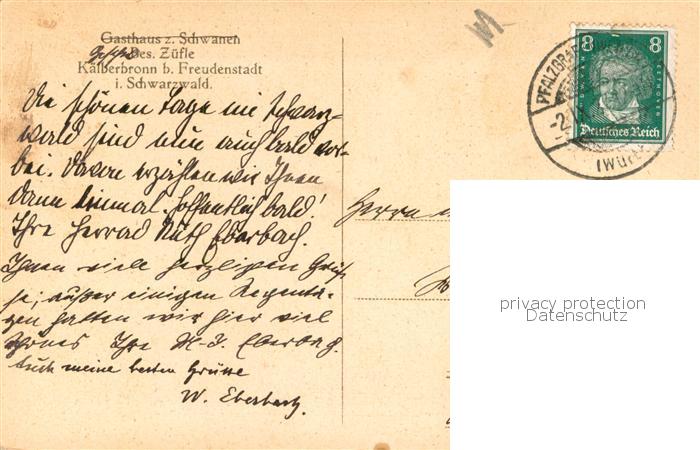 Gasthaus z. Schwanen
Bes. Züfle
Kälberbronn b. Freudenstadt
i. Schwarzwald.
Die schönen Tage im Schwarz-
wald sind nun auch bald vor-
bei. Davon erzählen wir Ihnen
dann einmal. Hoffentlich bald!
Ihre Herrad Ruth Eberbach.
Ihnen viele herzlichen Grüs-
se; außer einigen Regenta-
gen hatten wir hier viel
schönes Ihre M-J. Eberbach.
Auch meine besten Grüsse
W. Eberbach.
Herrn
8 8
BEETHOVEN
Deutsches Reich
PFALZGRAF
-2.
(Württ
privacy protection
Datenschutz